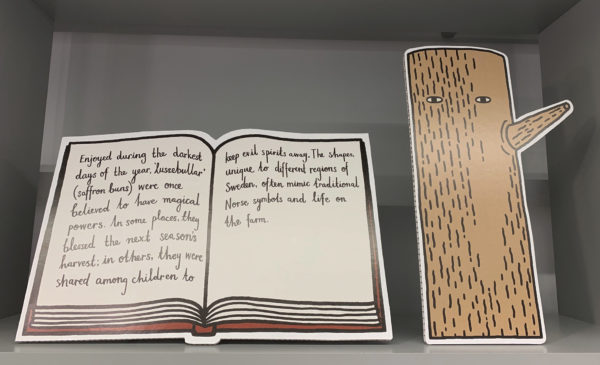 Enjoyed during the darkest
days of the year, 'lussebullar'
(saffron buns) were once
believed to have magical
powers. In some places, they
blessed the next season's
harvest; in others, they were
shared among children to
keep evil spirits away. The shapes,
unique to different regions of
Sweden, often mimic traditional
Norse symbols and life on
the farm.